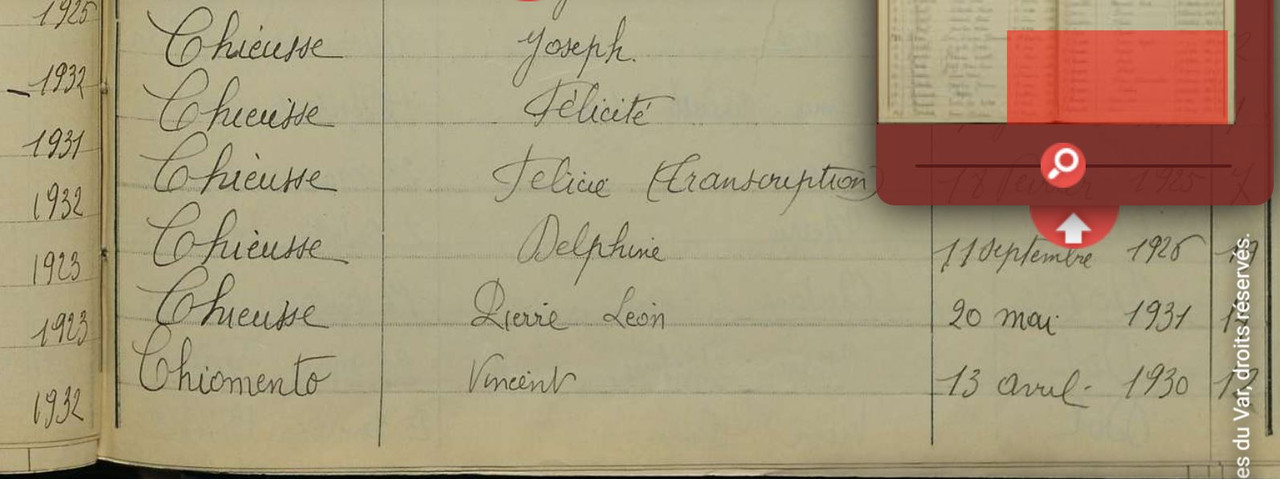 1925
Chieusse Joseph.
1932
Chieusse Félicité
1931
Chieusse Félicie (transcription) 18 1925
1932
Chieusse Delphine 11 Septembre 1926
1923
Chieusse Pierre Léon 20 mai 1931
1923
Chiomento Vincent 13 avril 1930
1932
es du Var, droits réservés.